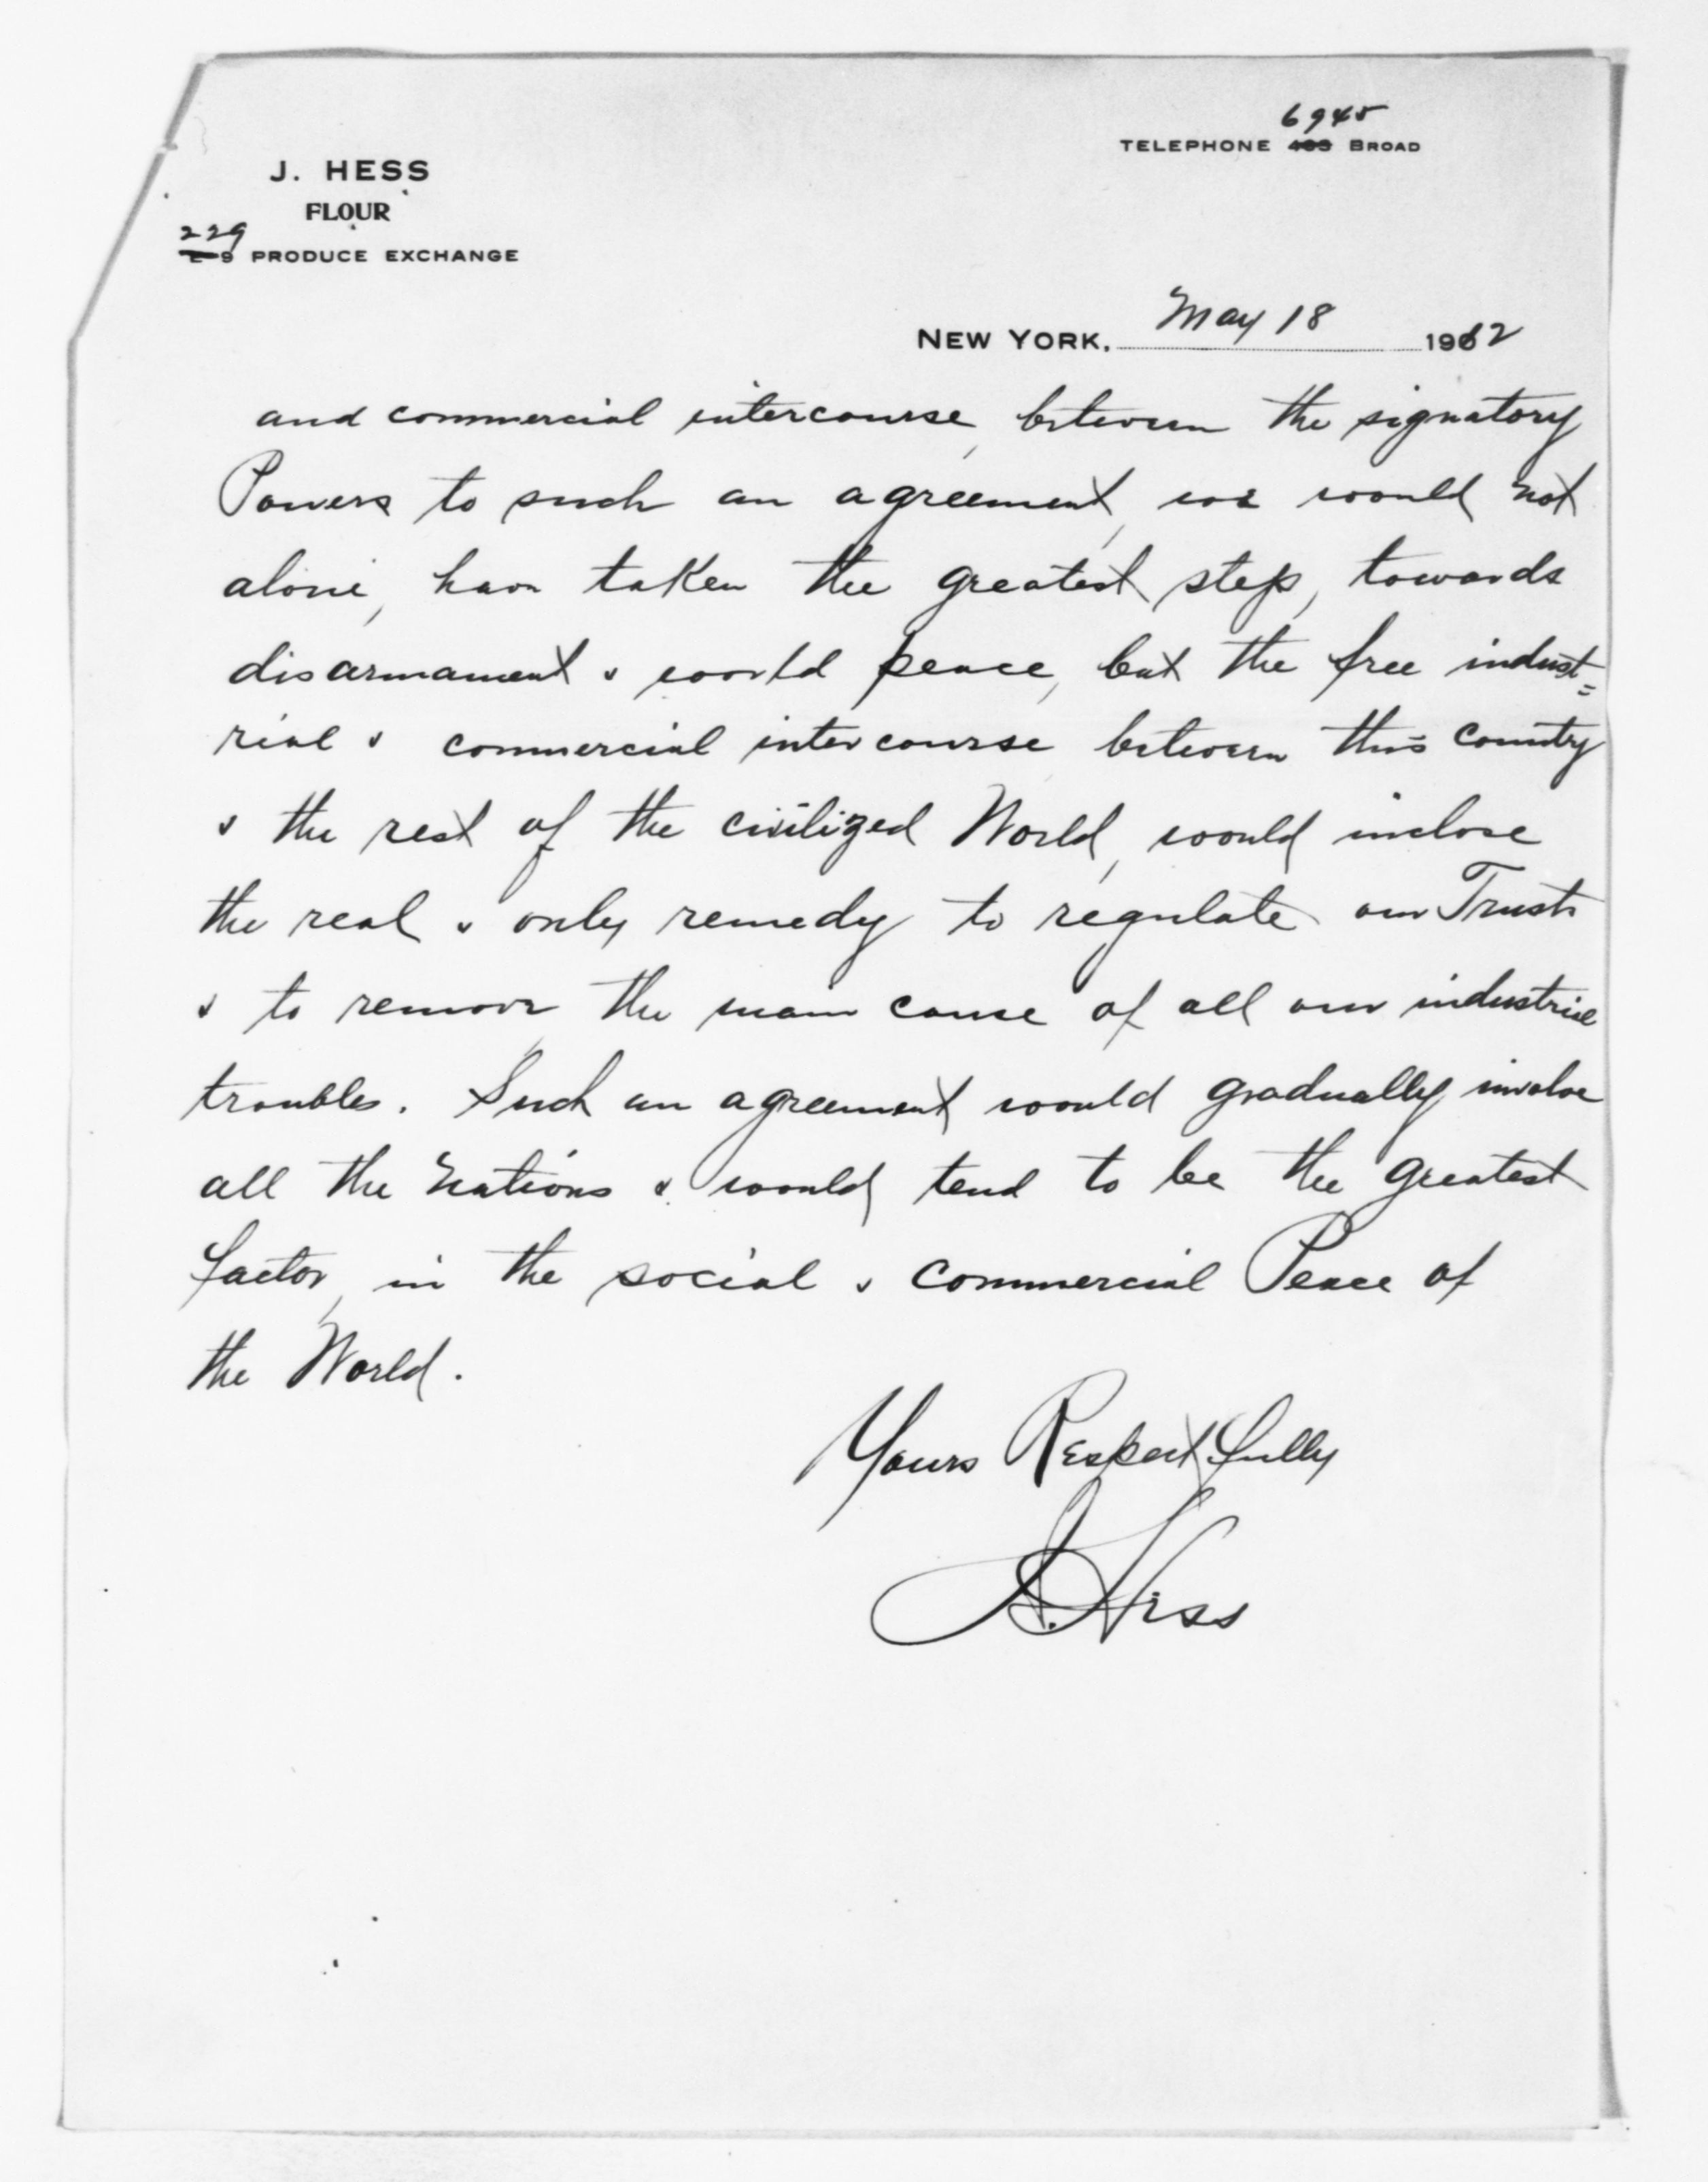 6945
TELEPHONE 403 BROAD
J. HESS
FLOUR
229
PRODUCE EXCHANGE
May 18
NEW YORK. 1912
and commercial intercourse, between the signatory
Powers to such an agreement, we would not
alone, have taken the greatest step, towards
disarmament & world peace, but the free indust=
rial & commercial intercourse between this country
& the rest of the civilized World, would inclose
the real & only remedy to regulate our Trusts
& to remove, the main cause of all our industrial
troubles. Such an agreement would gradually involve
all the Nations & would tend to be the greatest
factor, in the social & commercial Peace of
the World.
Yours Respectfully
J. Hess